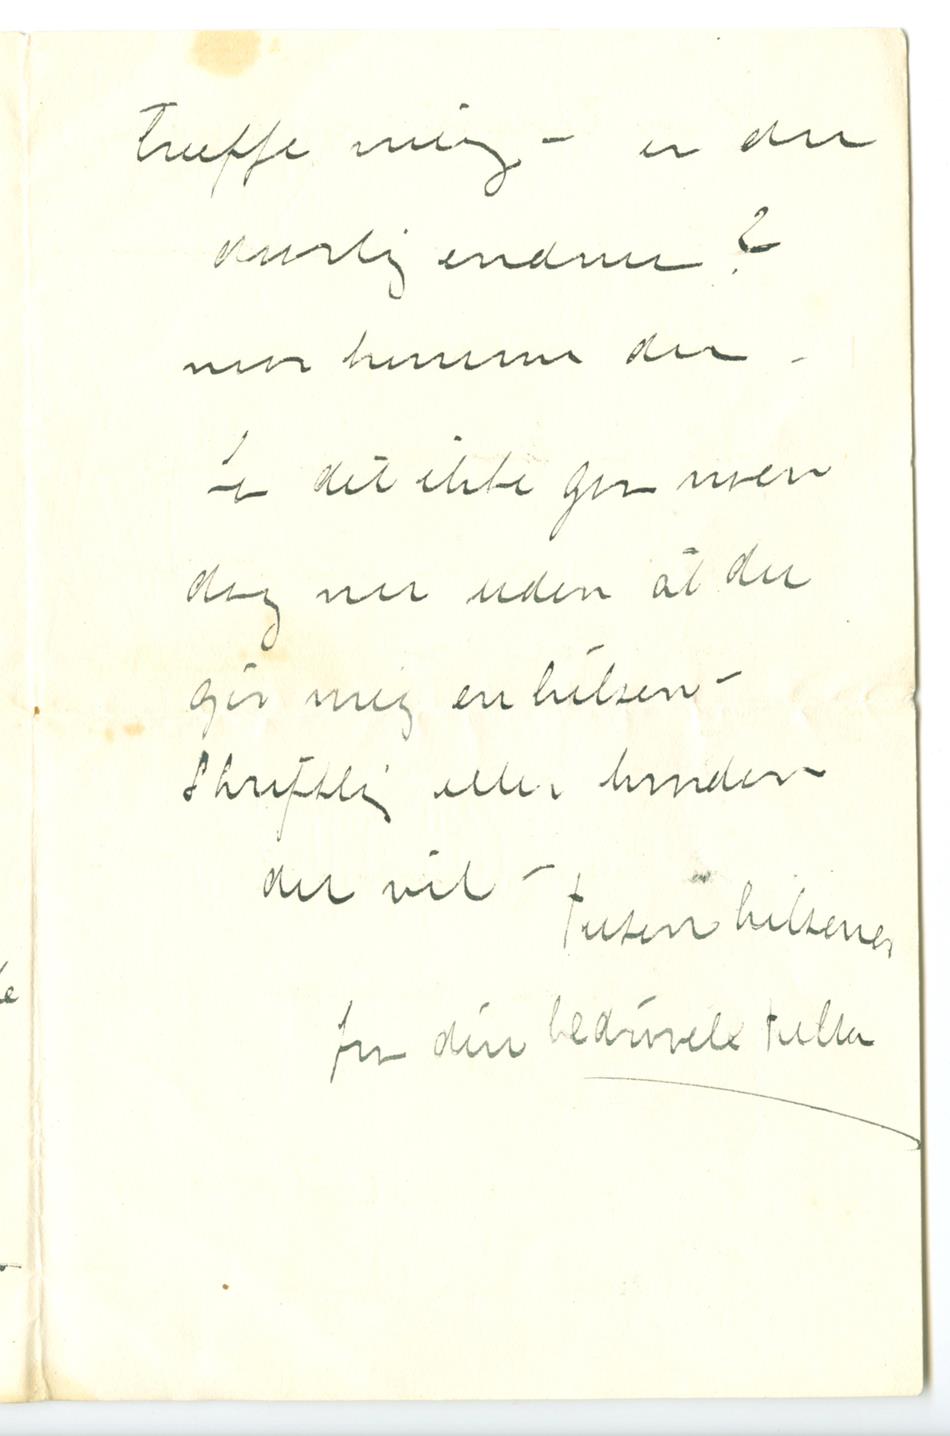 træffe mig – er du
daarlig endnu?
naar kommer du –
La det ikke gaa noen
dag nu uden at du
gir mig en hilsen –
Skriftlig eller hvordan
du vil –
tusen hilsener
fra din bedrøvede Tulla